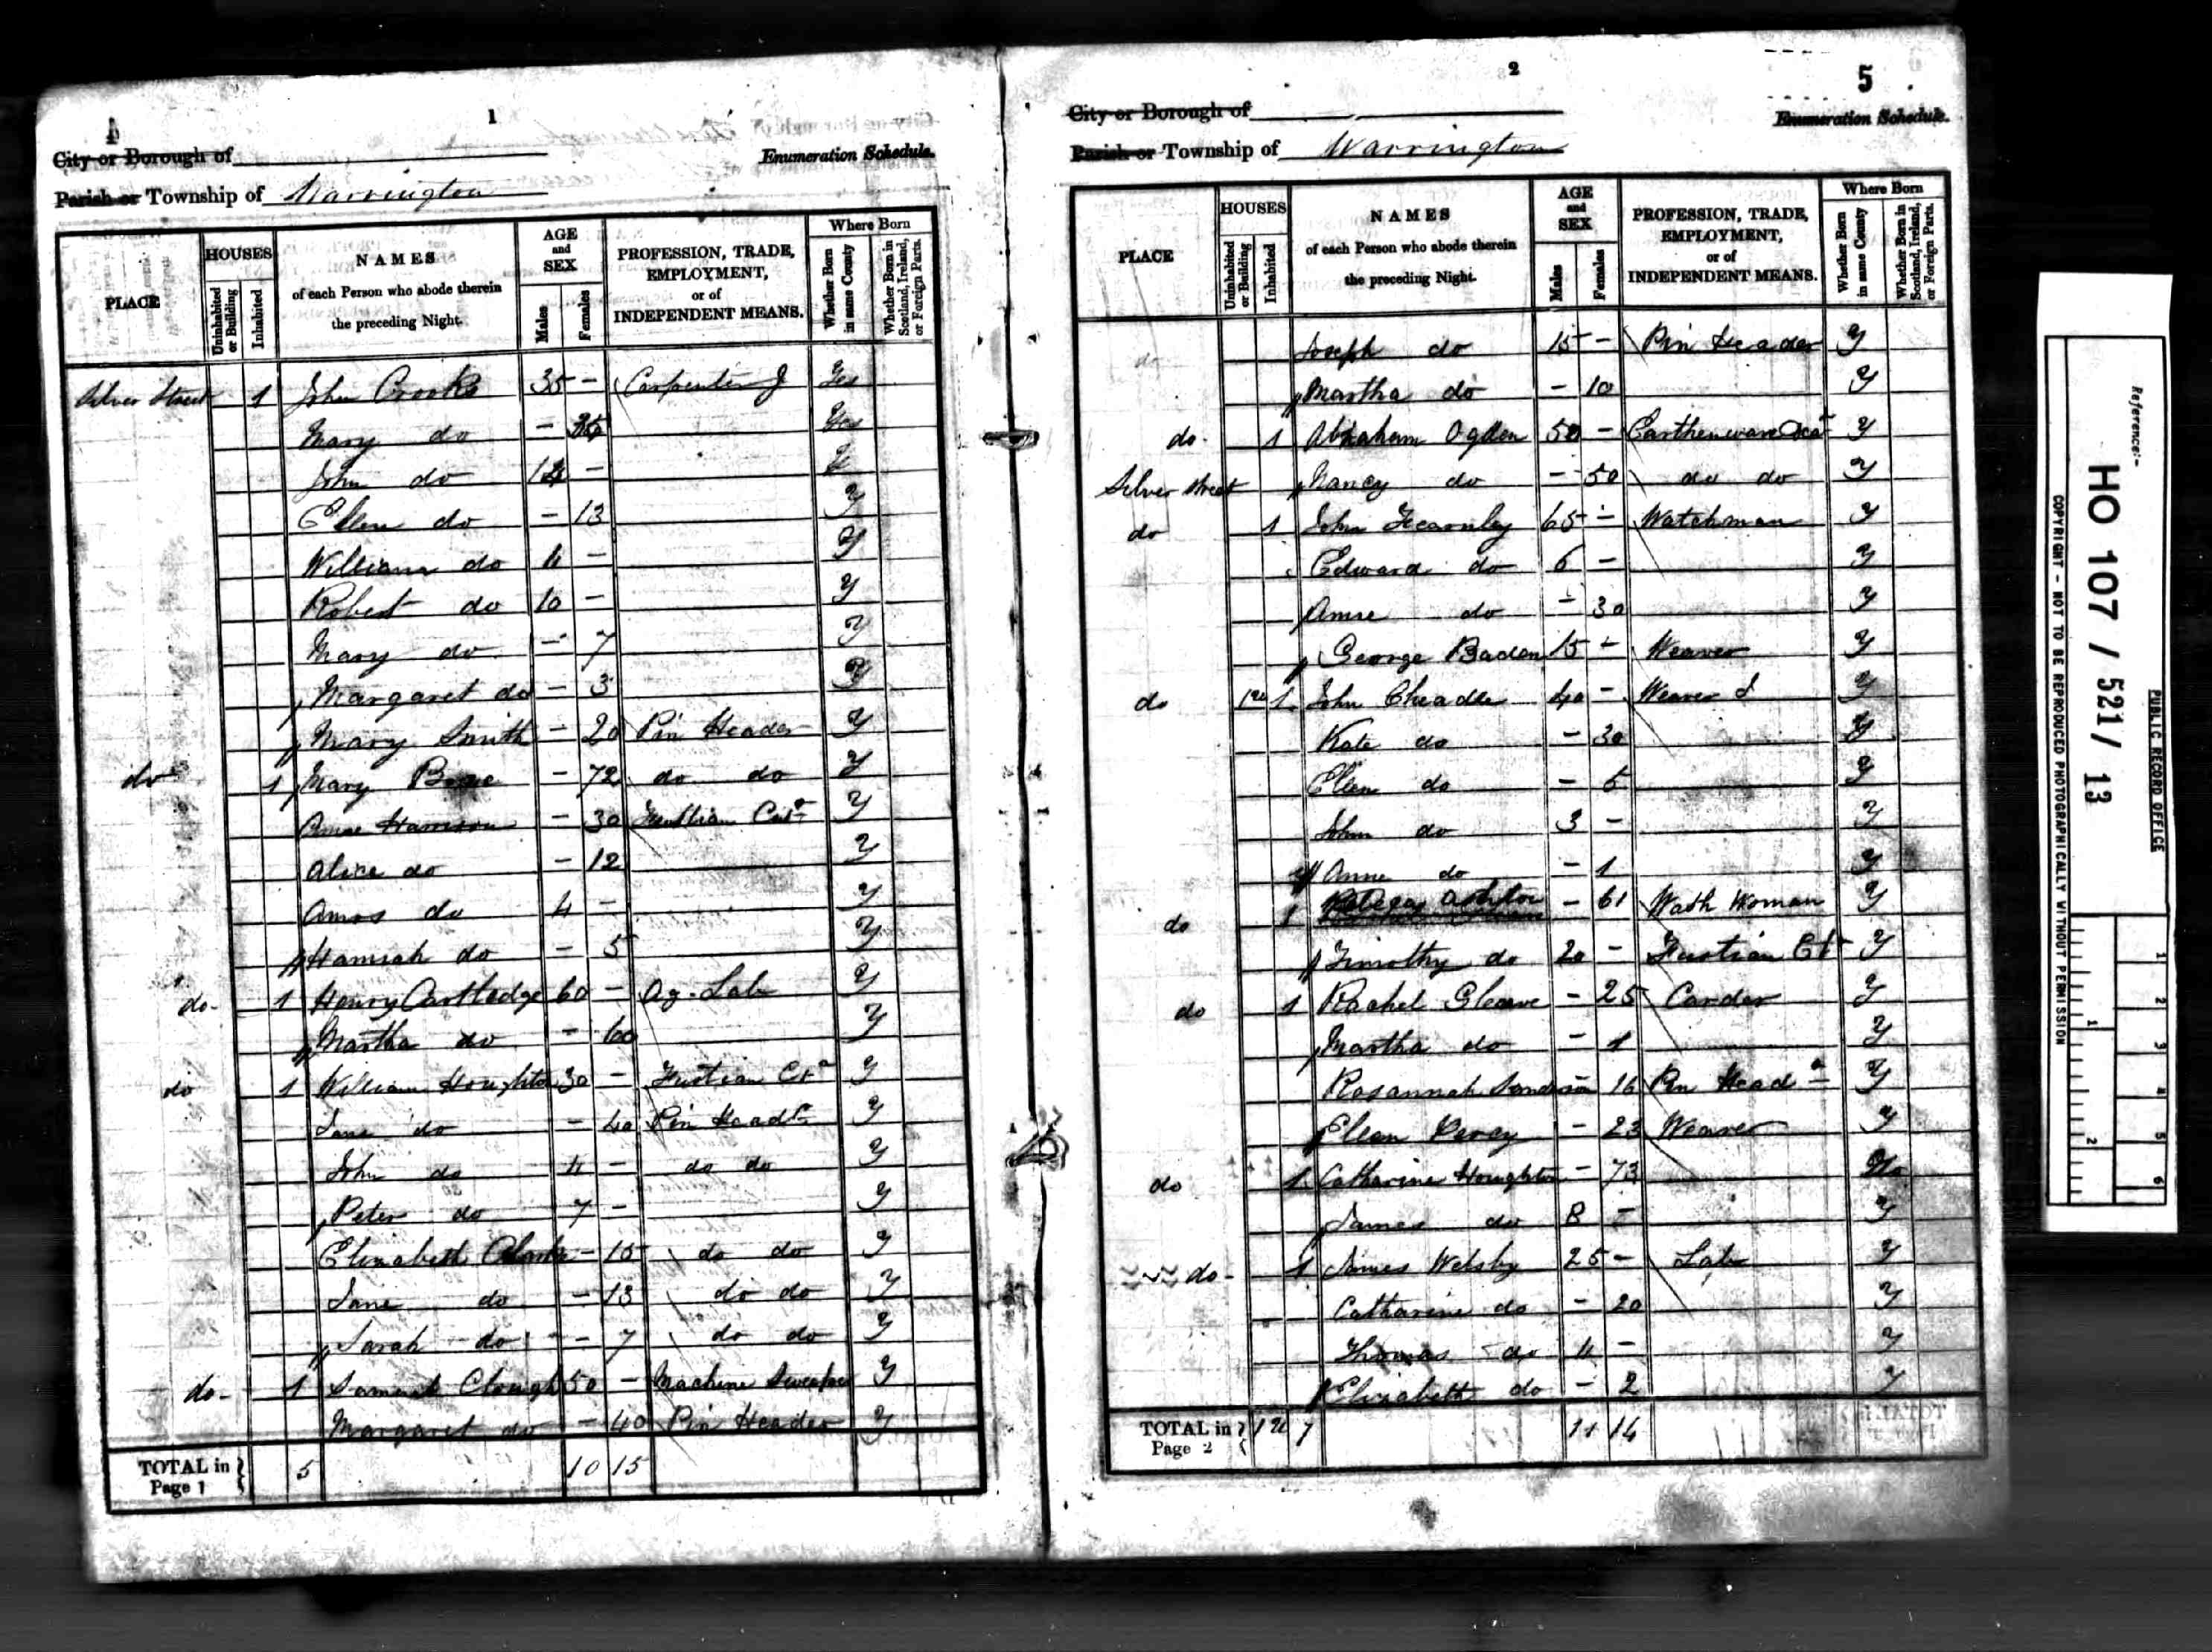 1
City or Borough of
Enumeration Schedule.
Parish or Township of Warrington
PLACE
HOUSES
Uninhabited or Building
Inhabited
NAMES of each Person who abode therein the preceding Night.
AGE and SEX
Males
Females
PROFESSION, TRADE, EMPLOYMENT, or of INDEPENDENT MEANS.
Where Born
Whether Born in same County
Whether Born in Scotland, Ireland, or Foreign Parts.
Silver Street 1 John Crooks 35 - Carpenter J Yes
Mary do - Yes
John do -
Ellen do - 13 Y
William do - Y
Robert do 10 - Y
Mary do - 7 Y
Margaret do - 3 Y
Mary Smith - 20 Pin Header Y
do 1 Mary - 72 do do Y
Harrison - 30 Y
Alice do - 12 Y
Amos do 4 - Y
Hannah do - 5 Y
do- 1 Henry Cartledge 60 - Ag. Lab Y
Martha do - 60 Y
do 1 William Houghton 30 - Fustian Ctr Y
Jane do - 40 Pin Headr Y
John do - do do Y
Peter do 7 - Y
Elizabeth - 15 do do Y
Jane do - 13 do do Y
Sarah do - 7 do do Y
do- 1 Samuel Clough 50 - Machine Y
Margaret do - 40 Pin Header Y
TOTAL in Page 1 5 10 15
2
5
City or Borough of
Enumeration Schedule.
Parish or Township of Warrington
PLACE
HOUSES
Uninhabited or Building
Inhabited
NAMES of each Person who abode therein the preceding Night.
AGE and SEX
Males
Females
PROFESSION, TRADE, EMPLOYMENT, or of INDEPENDENT MEANS.
Where Born
Whether Born in same County
Whether Born in Scotland, Ireland, or Foreign Parts.
do Joseph do 15 - Pin Header Y
Martha do - 10 Y
do- 1 Abraham Ogden 50 - Earthenware Y
Silver Street Nancy do - 50 do do Y
do 1 John Fearnley 65 - Watchman Y
Edward do 6 - Y
Anne do - 30 Y
George Baden 15 - Weaver Y
do 1u 1 John Cheadle 40 - Weaver J Y
Kate do - 30 Y
Ellen do - 5 Y
John do 3 - Y
Anne do - 1 Y
do 1 Ashton - 61 Wash Woman Y
Timothy do 20 - Fustian Ct Y
do 1 Rachel Gleave - 25 Carder Y
Martha do - 1 Y
Rosannah - 16 Pin Headr Y
Ellen Percy - 23 Weaver Y
do 1 Catharine Houghton - 73 No
James do 8 - Y
do- 1 James Welsby 25 - Lab Y
Catharine do - 20 Y
Thomas do - Y
Elizabeth do - 2 Y
TOTAL in Page 2 1u 7 11 14
Reference:-
HO 107/521/13
PUBLIC RECORD OFFICE
COPYRIGHT - NOT TO BE REPRODUCED PHOTOGRAPHICALLY WITHOUT PERMISSION
1 2 3 4 5 6
1 2